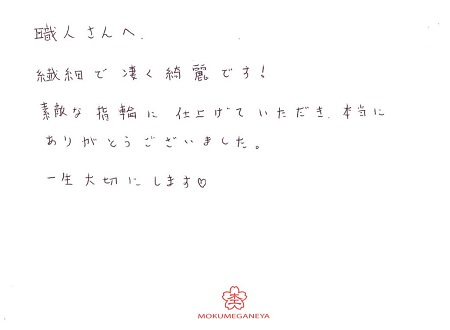 職人さんへ.
繊細で凄く綺麗です!
素敵な指輪に仕上げていただき、本当に
ありがとうございました。
一生大切にします♡
MOKUMEGANEYA